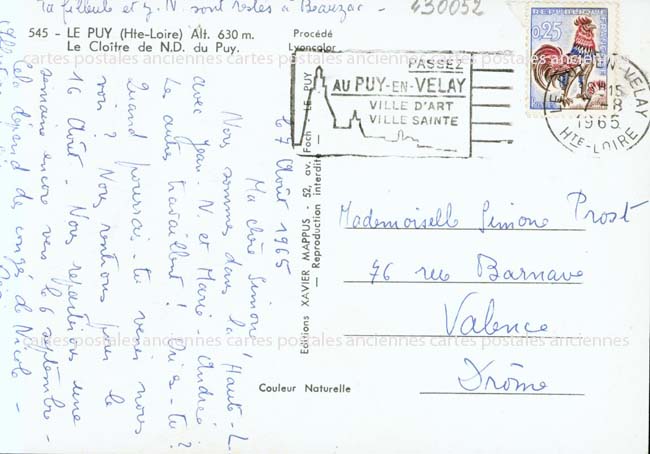 Ta filleule et J. N. sont restés à Beauzac -
430052
545 - LE PUY (Hte-Loire) Alt. 630 m.
Le Cloître de N.D. du Puy.
Procédé
Lyoncolor
PASSEZ
AU PUY-EN-VELAY
VILLE D'ART
VILLE SAINTE
REPUBLIQUE
FRANÇAISE
0,25
LE PUY-EN-VELAY
15
8
1965
HTE-LOIRE
Editions XAVIER MAPPUS - 52, av. Foch - LE PUY
— Reproduction interdite —
Couleur Naturelle
Mademoiselle Simone Prost
76 rue Barnave
Valence
Drôme
Août 1965
Ma chère Simone
Nous sommes dans la Haute-L.
avec Jean-N. et Marie-Andrée
Le autres travaillent!
Quand pourrais-tu venir nous
voir? Nous rentrons le
16 Août - Nous repartirons une
semaine encore vers le 6 septembre -
cela dépend des congés de Nicole -
cartes postales anciennes cartes postales anciennes cartes postales anciennes